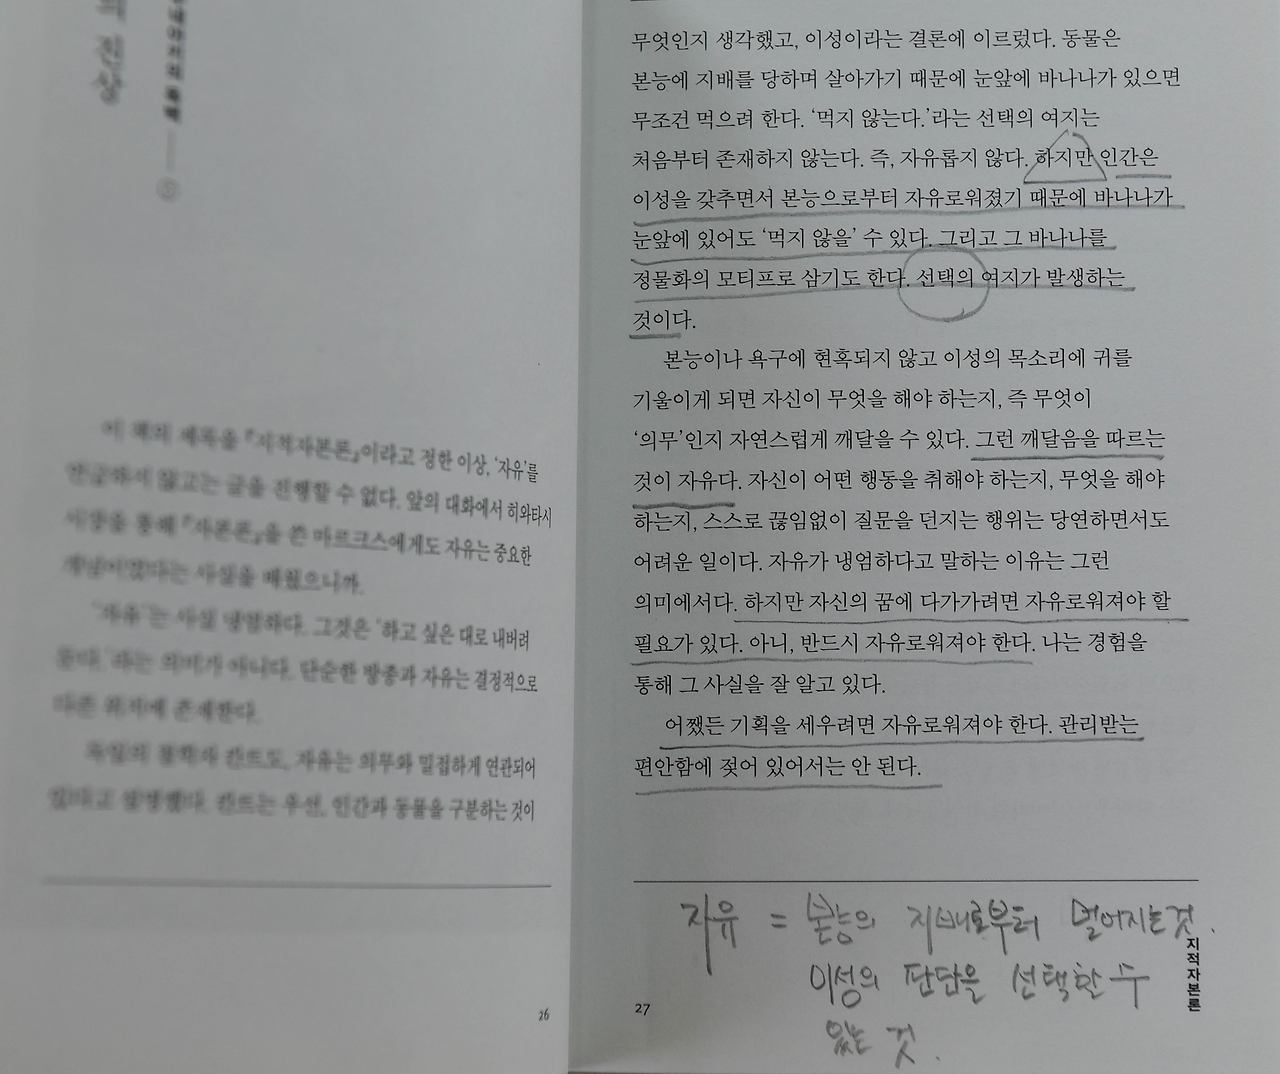 의 진상
이 책의 제목을 『지적자본론』이라고 정한 이상, ‘자유’를
언급하지 않고는 글을 진행할 수 없다. 앞의 대화에서 히와타시
시장을 통해 『자본론』을 쓴 마르크스에게도 자유는 중요한
개념이었다는 사실을 배웠으니까.
‘자유’는 사실 냉엄하다. 그것은 ‘하고 싶은 대로 내버려
둔다.’라는 의미가 아니다. 단순한 방종과 자유는 결정적으로
다른 위치에 존재한다.
독일의 철학자 칸트도, 자유는 의무와 밀접하게 연관되어
있다고 설명했다. 칸트는 우선, 인간과 동물을 구분하는 것이
26
무엇인지 생각했고, 이성이라는 결론에 이르렀다. 동물은
본능에 지배를 당하며 살아가기 때문에 눈앞에 바나나가 있으면
무조건 먹으려 한다. ‘먹지 않는다.’라는 선택의 여지는
처음부터 존재하지 않는다. 즉, 자유롭지 않다. 하지만 인간은
이성을 갖추면서 본능으로부터 자유로워졌기 때문에 바나나가
눈앞에 있어도 ‘먹지 않을’ 수 있다. 그리고 그 바나나를
정물화의 모티프로 삼기도 한다. 선택의 여지가 발생하는
것이다.
본능이나 욕구에 현혹되지 않고 이성의 목소리에 귀를
기울이게 되면 자신이 무엇을 해야 하는지, 즉 무엇이
‘의무’인지 자연스럽게 깨달을 수 있다. 그런 깨달음을 따르는
것이 자유다. 자신이 어떤 행동을 취해야 하는지, 무엇을 해야
하는지, 스스로 끊임없이 질문을 던지는 행위는 당연하면서도
어려운 일이다. 자유가 냉엄하다고 말하는 이유는 그런
의미에서다. 하지만 자신의 꿈에 다가가려면 자유로워져야 할
필요가 있다. 아니, 반드시 자유로워져야 한다. 나는 경험을
통해 그 사실을 잘 알고 있다.
어쨌든 기획을 세우려면 자유로워져야 한다. 관리받는
편안함에 젖어 있어서는 안 된다.
자유 = 본능의 지배로부터 멀어지는것.
이성의 판단을 선택할 수
있는 것.
지적자본론
27